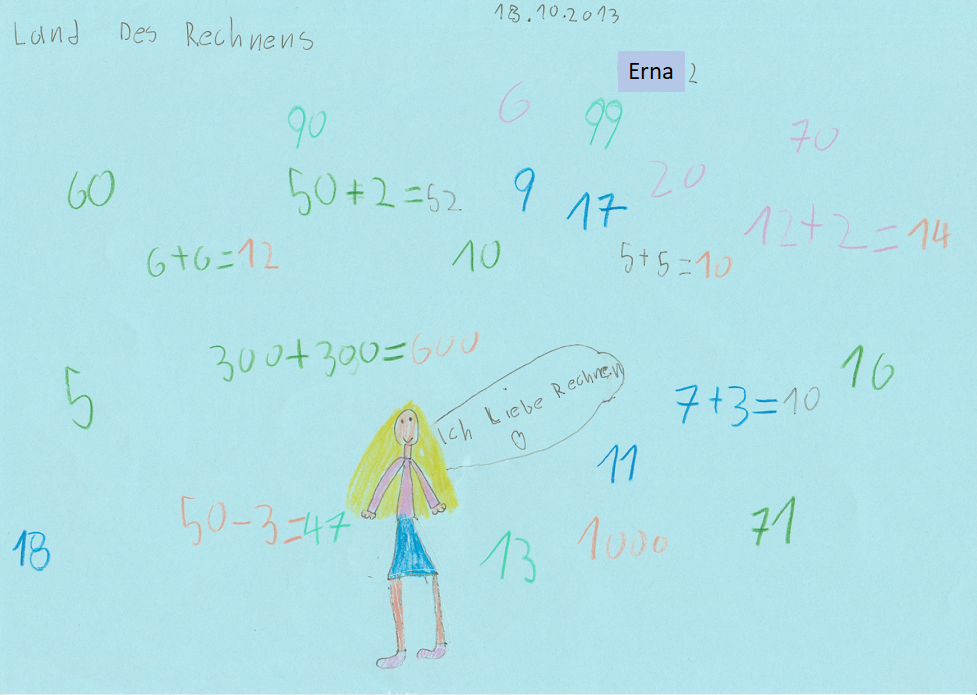 Land Des Rechnens
18.10.2013
Erna 2
90
6
99
70
60
50+2=52
9
17
20
12+2=14
6+6=12
10
5+5=10
300+300=600
5
Ich Liebe Rechnen
7+3=10
16
11
50-3=47
18
13
1000
71